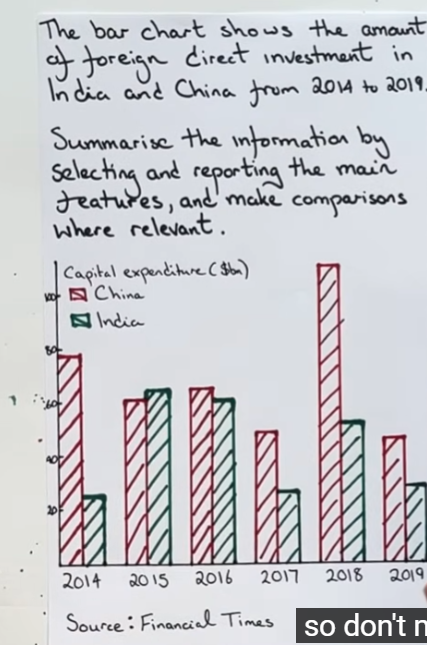 The bar chart shows the amount
of foreign direct investment in
India and China from 2014 to 2019.
Summarise the information by
selecting and reporting the main
features, and make comparisons
where relevant.
Capital expenditure ($bn)
China
India
100
80
60
40
20
2014 2015 2016 2017 2018 2019
Source: Financial Times
so don't